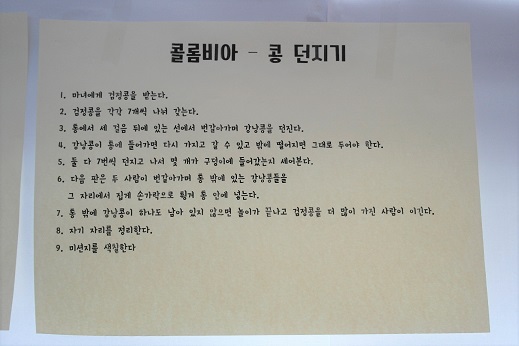 콜롬비아 - 콩 던지기
1. 마녀에게 검정콩을 받는다.
2. 검정콩을 각각 7개씩 나눠 갖는다.
3. 통에서 세 걸음 뒤에 있는 선에서 번갈아가며 강낭콩을 던진다.
4. 강낭콩이 통에 들어가면 다시 가지고 갈 수 있고 밖에 떨어지면 그대로 두어야 한다.
5. 둘 다 7번씩 던지고 나서 몇 개가 구덩이에 들어갔는지 세어본다.
6. 다음 판은 두 사람이 번갈아가며 통 밖에 있는 강낭콩들을
그 자리에서 집게 손가락으로 튕겨 통 안에 넣는다.
7. 통 밖에 강낭콩이 하나도 남아 있지 않으면 놀이가 끝나고 검정콩을 더 많이 가진 사람이 이긴다.
8. 자기 자리를 정리한다.
9. 미션지를 색칠한다